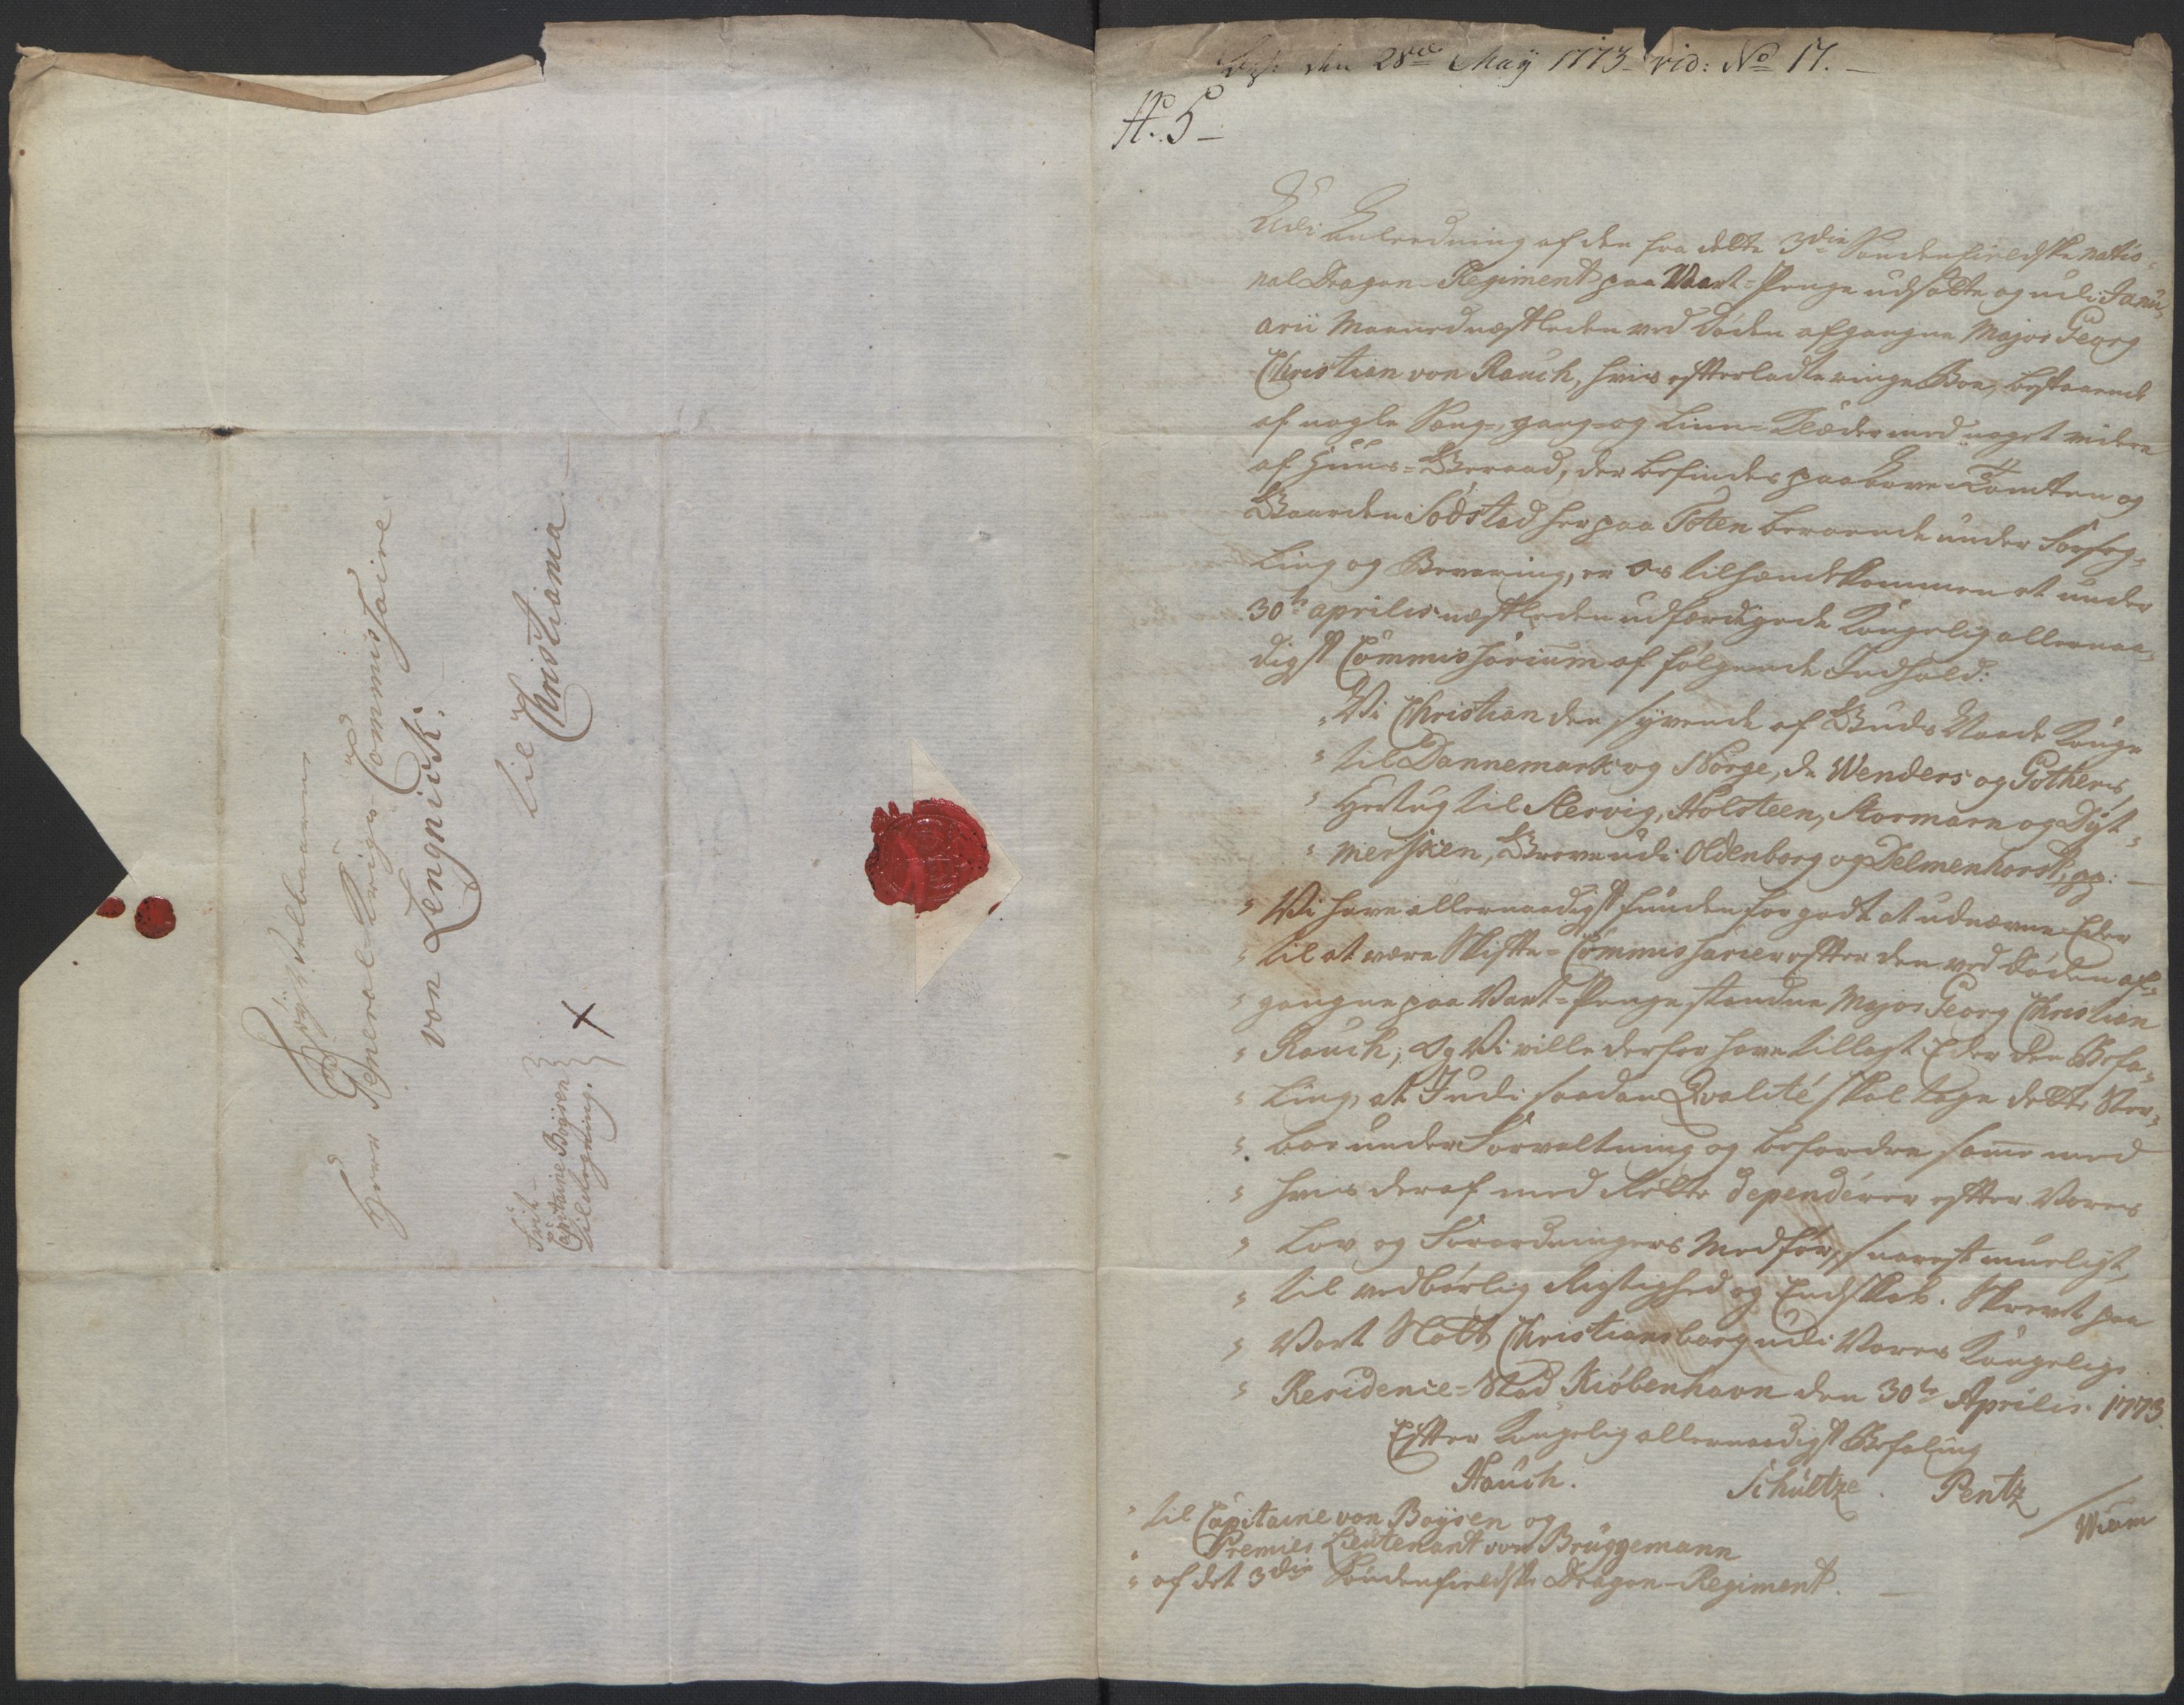 Høyædelbaarne
Herr General-Krigs-Commissaire
von Lengnick.
til Christiania.
frit
Capitaine Boysen
til Udregning.
den 28de May 1773 vid: No 17.
A. 5
Udi Anleedning af den fra dette 3die Søndenfieldske natio-
nal Dragon-Regiment paa Vaart-Penge udsatte og udi Janu-
arii Maaned næstleden ved Døden afgangne Major Georg
Christian von Rauch, hvis efterladte ringe Boe, bestaaende
af nogle Seng-, gang- og Linn-Klæder med noget videre
af Huus-Geraad, der befindes paa Tomten og
Gaarden Sødstad her paa Toten beroende under Forseg-
ling og Bevaring, er os tilhændekommen et under
30te aprilis næstleden udfærdigede Kongelig allernaa-
digst Commissorium af følgende Indhold:
"Vi Christian den Syvende af Guds Naade Konge
" til Dannemark og Norge, de Wenders og Gothers,
" Hertug til Slesvig, Holsteen, Stormarn og Dyt-
" mersken, Greve udi Oldenborg og Delmenhorst, pp:
" Vi have allernaadigst funden for godt at udnævne Eder
" til at være Skifte-Commissarier efter den ved Døden af-
" gangne paa Vart-Penge standne Major Georg Christian
" Rauch; Og Vi ville derfor have tillagt Eder den Befa-
" ling, at I udi saadan Qvalité skal tage dette Sterv-
" boe under Forvaltning og befordre samme med
" hvis deraf med Rette dependérer efter Vores
" Lov og Forordningers Medfør, snarest mueligt,
" til vedbørlig Rigtighed og Endskab. Skrevet paa
" Vort Slott Christiansborg udi Vores Kongelige
" Residence-Stad Kiøbenhavn den 30te Aprilis 1773.
Efter Kongelig allernaadigst Befaling
Hauch. Schultze. Pentz
Wium
" til Capitaine von Boysen og
" Premier Lieutenant von Brüggemann
" af det 3die Søndenfieldske Dragon-Regiment.